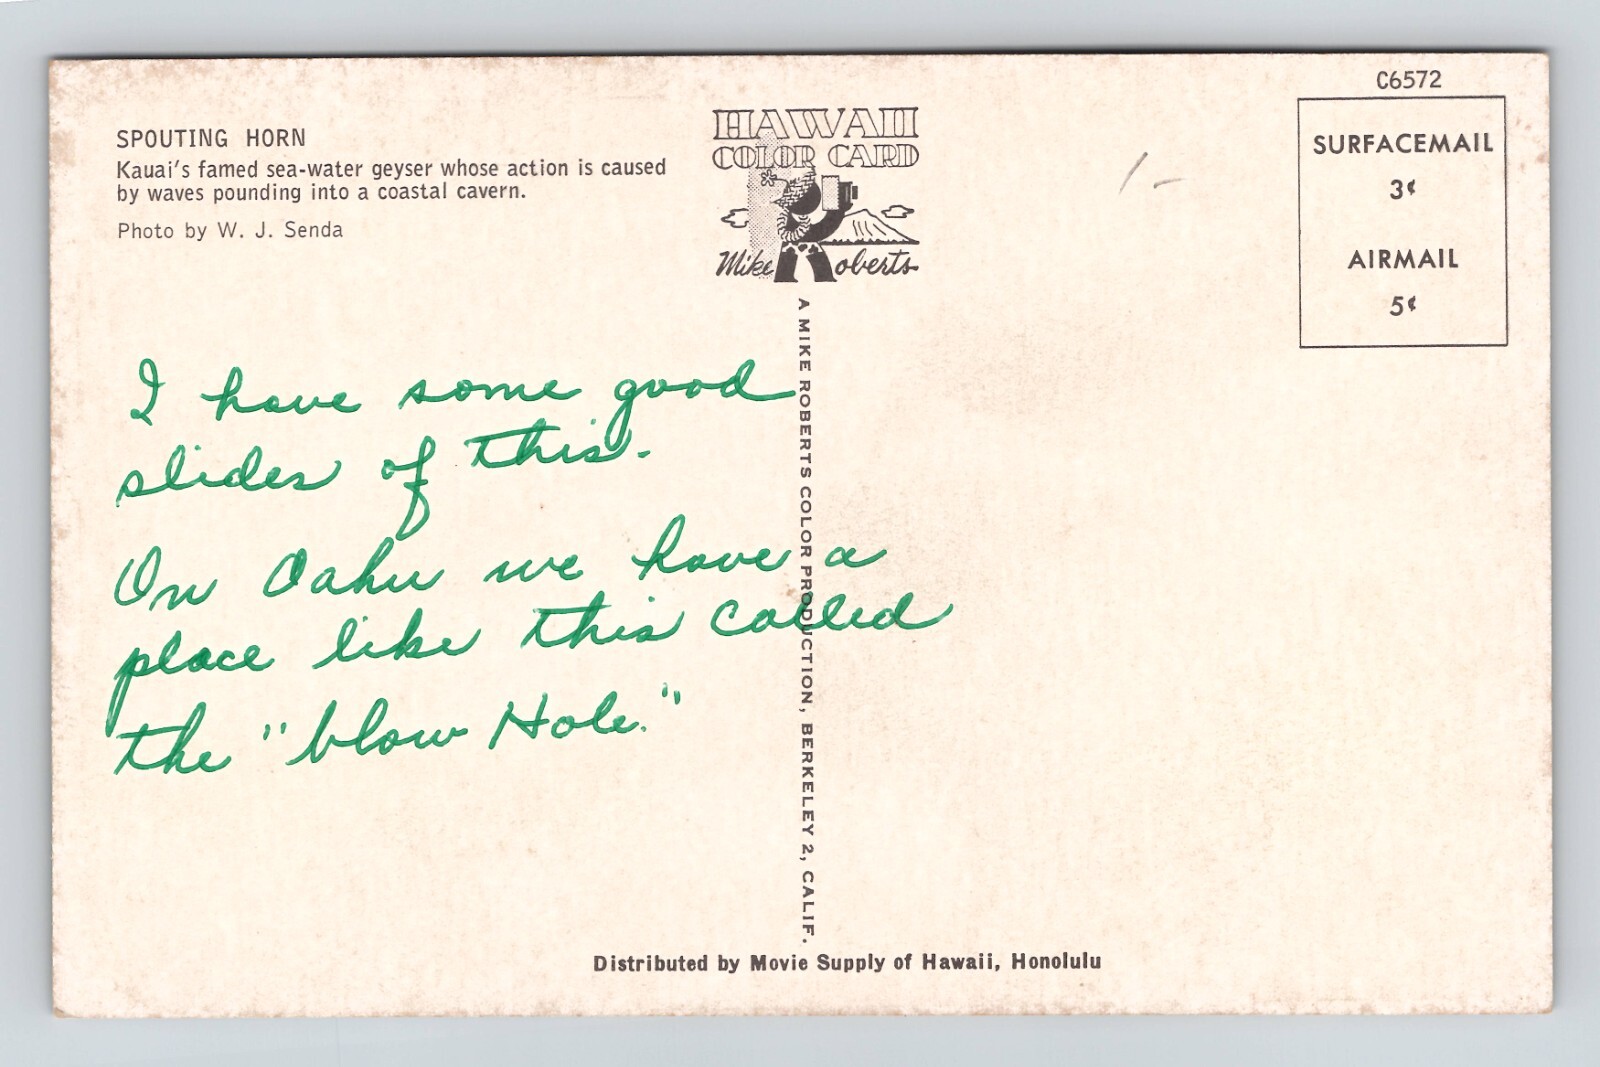 C6572
SURFACEMAIL
3¢
AIRMAIL
5¢
SPOUTING HORN
Kauai's famed sea-water geyser whose action is caused
by waves pounding into a coastal cavern.
Photo by W. J. Senda
HAWAII
COLOR CARD
Mike Roberts
I have some good
slides of this.
On Oahu we have a
place like this called
the "blow Hole."
A MIKE ROBERTS COLOR PRODUCTION, BERKELEY 2, CALIF.
Distributed by Movie Supply of Hawaii, Honolulu
1-